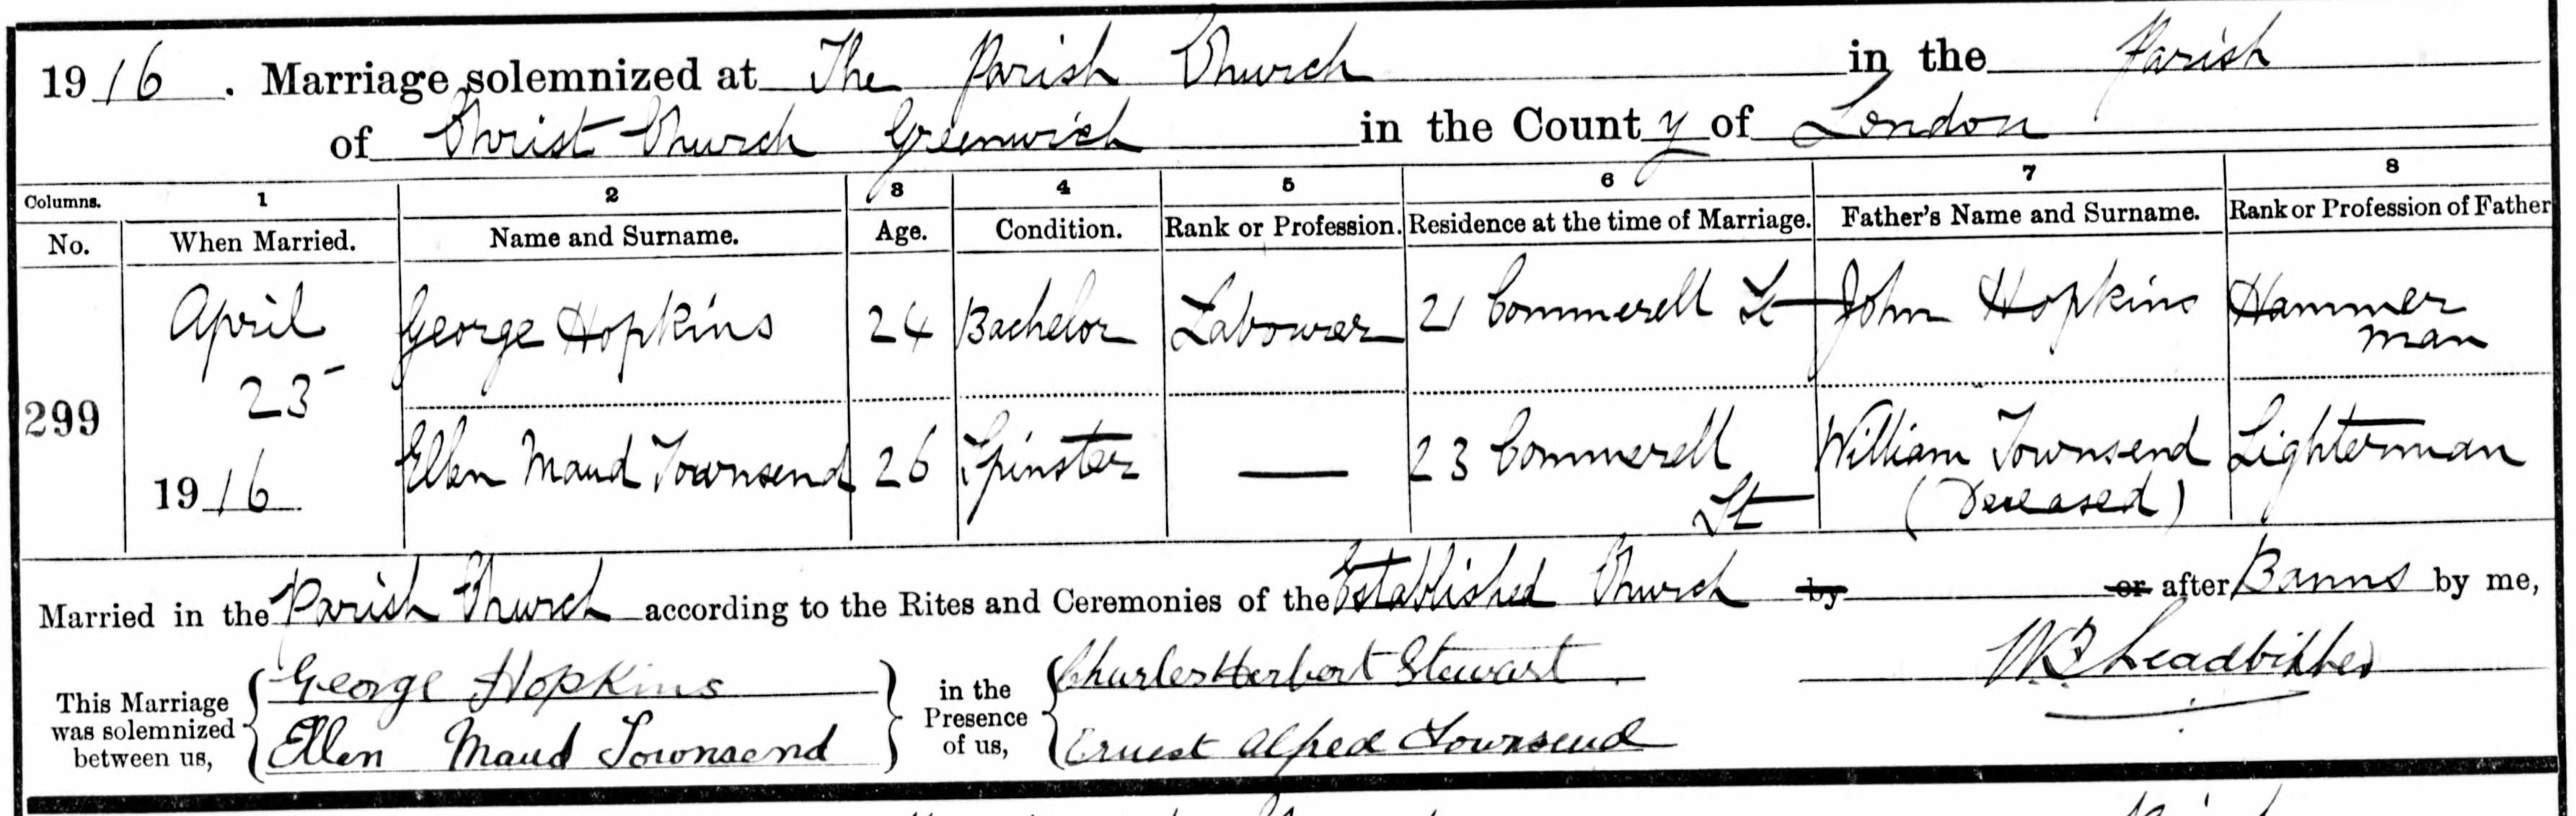 1916. Marriage solemnized at The Parish Church in the Parish
of Christ Church Greenwich in the County of London
Columns. 1 2 3 4 5 6 7 8
No. When Married. Name and Surname. Age. Condition. Rank or Profession. Residence at the time of Marriage. Father's Name and Surname. Rank or Profession of Father
299 April 23 1916
George Hopkins 24 Bachelor Labourer 21 Commerell St John Hopkins Hammer man
Ellen Maud Townsend 26 Spinster — 23 Commerell St William Townsend (Deceased) Lighterman
Married in the Parish Church according to the Rites and Ceremonies of the Established Church by or after Banns by me,
This Marriage was solemnized between us,
George Hopkins
Ellen Maud Townsend
in the Presence of us,
Charles Herbert Stewart
Ernest Alfred Townsend
Leadbitter